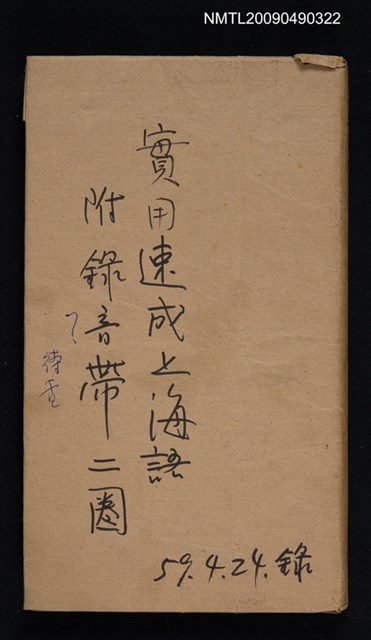 NMTL20090490322
實用速成上海語
附錄音帶二圈
?待查
59.4.24.錄